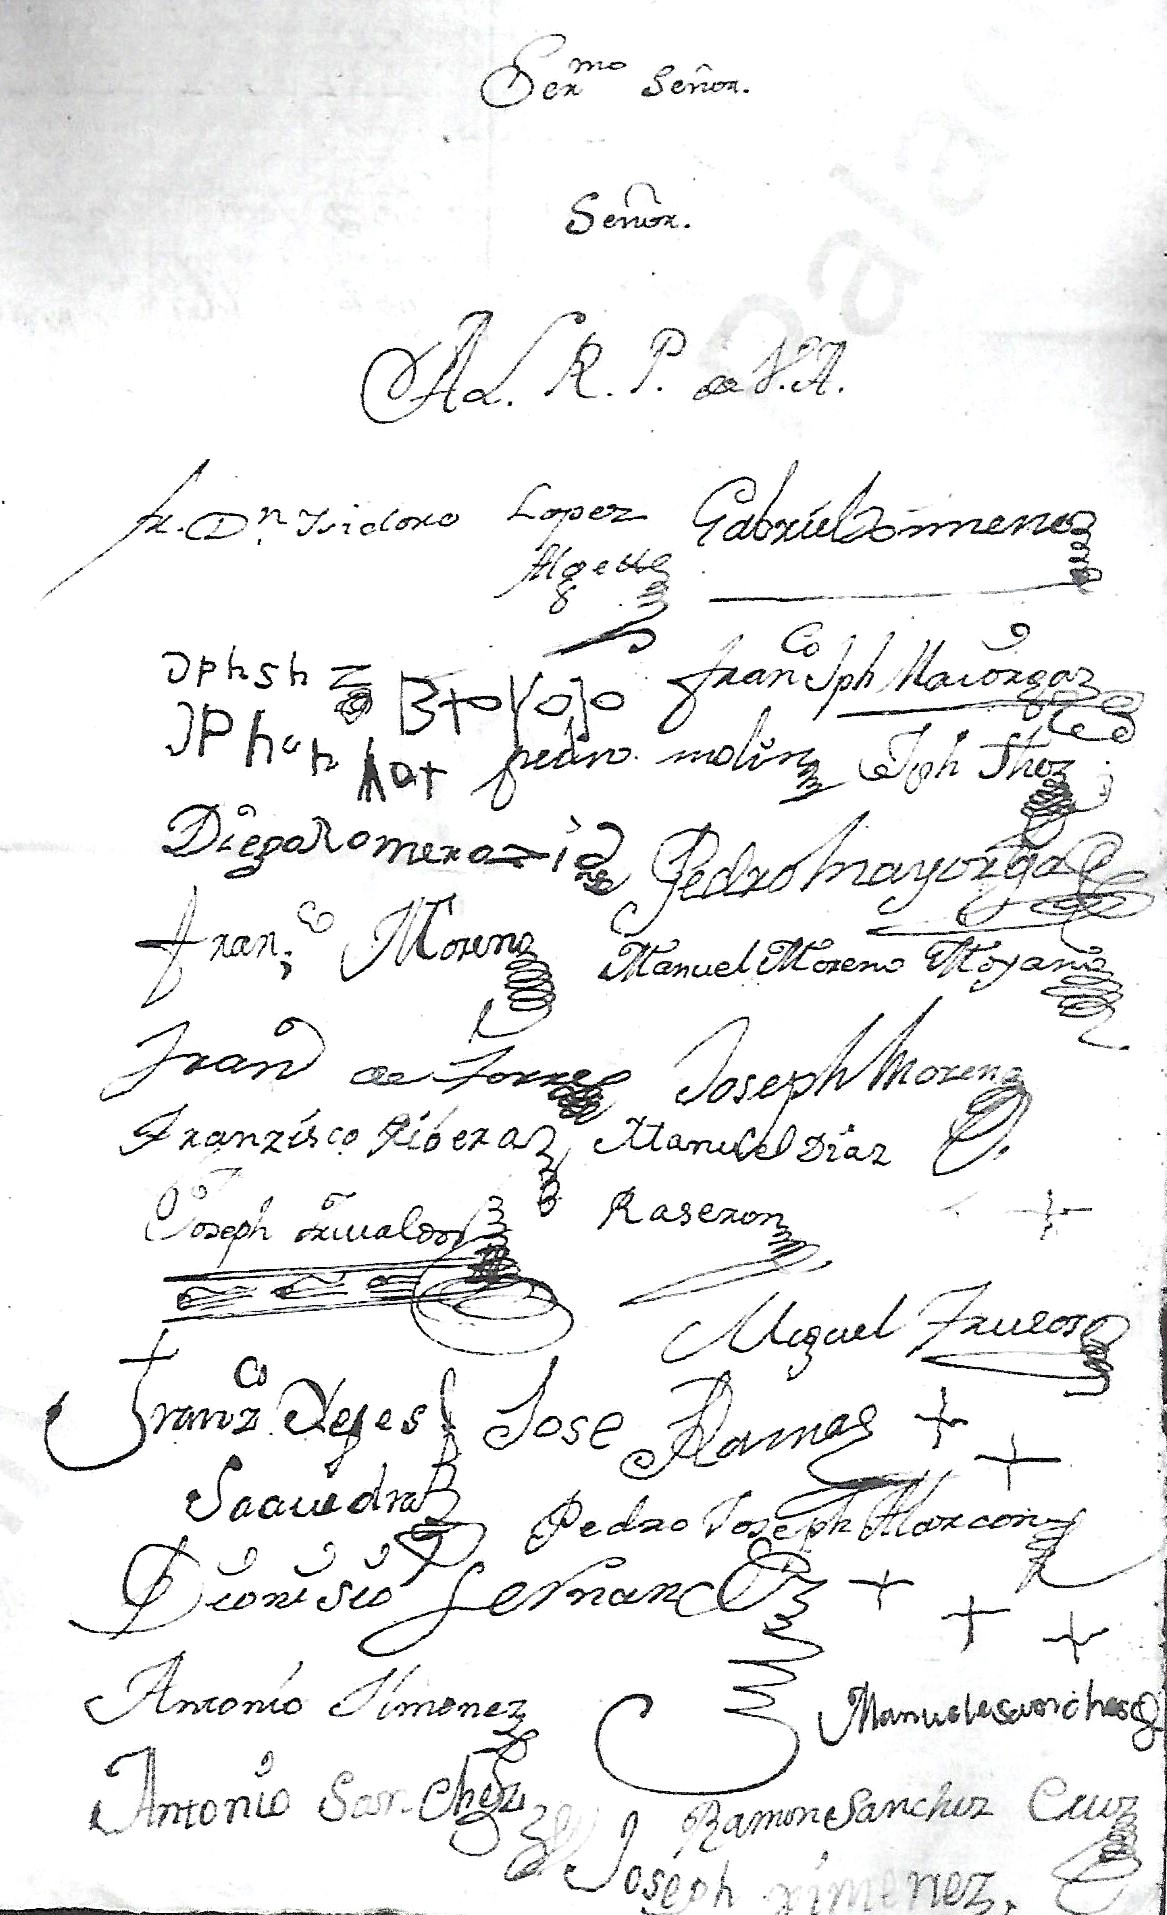 Ser.mo Señor.
Señor.
A L. R. P. de V.A.
fr. Dn. Isidoro Lopez Gabriel Ximenez
Algete
Jphsh Franco Jph Maiorga
pedro molina Jph
Diego Romero Pedro Mayorga
Fran.co Moreno Manuel Moreno Moyano
Fran de Torres Joseph Moreno
Franzisco Ribera Manuel Diaz
Joseph Raseron
Miguel Frucos
Franco Yepes Jose Ramas
Saavedra Pedro Joseph Alarcon
Dionisio Fernandez
Antonio Ximenez Manuel Sanches
Antonio Sanchez Ramon Sanchez Cruz
Joseph ximenez.